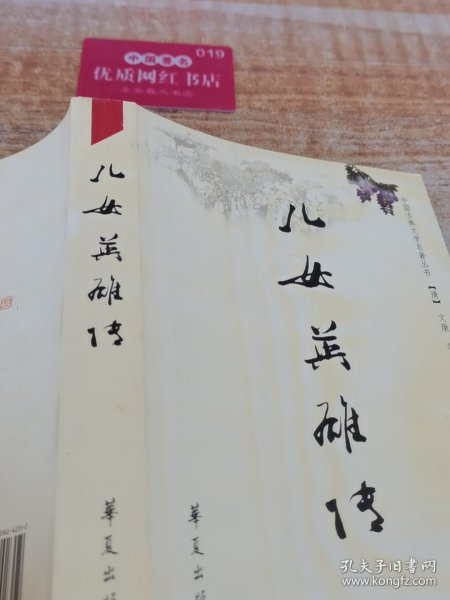 中国著名
019
优质网红书店
儿女英雄传
華夏出版
儿女英雄传
中国古典文学名著丛书
【清】文康
華夏出版
孔夫子旧书网
www.kongfz.com